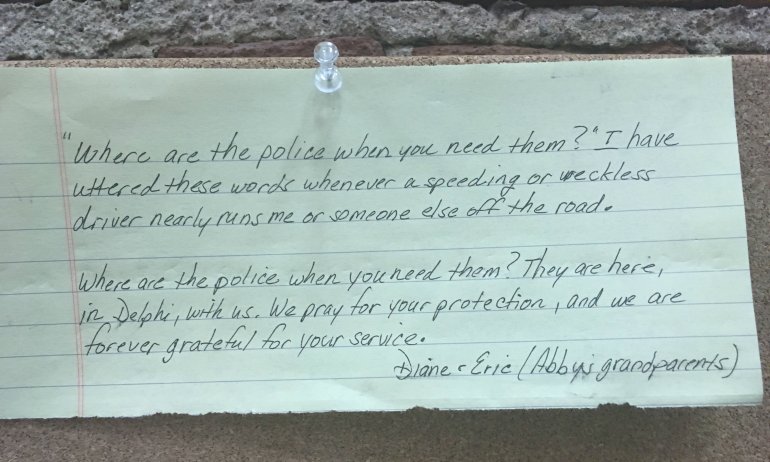 "Where are the police when you need them?" I have
uttered these words whenever a speeding or weckless
driver nearly runs me or someone else off the road.
Where are the police when you need them? They are here,
in Delphi, with us. We pray for your protection, and we are
forever grateful for your service.
Diane & Eric (Abby's grandparents)